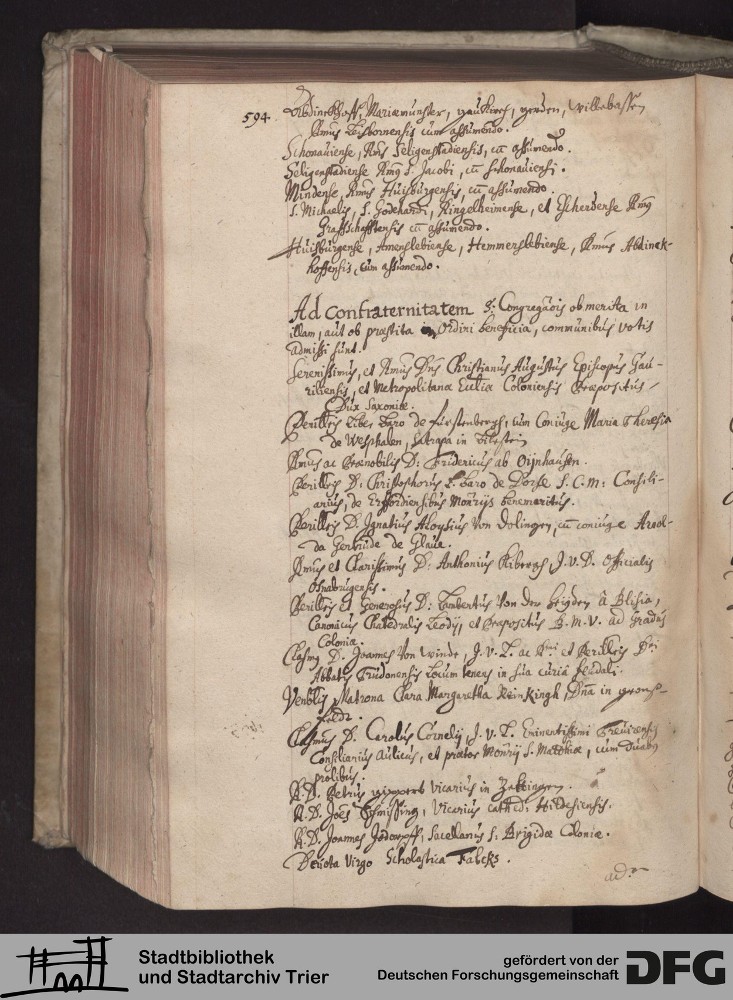 594.
Abdinckhoff, Mariæmünster, gerden, willebassen
Rmus Leisbornensis cum assumendo.
Schonauiense, Rmus Seligenstadiensis, cū assumendo.
Seligenstadiense Rmus S. Jacobi, cū schonauiensi.
Mindense, Rmus Huisburgensis, cū assumendo.
S. Michaelis, S. Godehardi, Ringelheimense, et Escherdense Rmus
Graffschafftensis cū assumendo.
Huisburgense, Amenslebiense, Hemmerslebiense, Rmus Abdinck-
hoffensis, cum assumendo.
Ad Confraternitatem S: Congregāōis ob merita in
illam, aut ob præstita Ordini beneficia, communibus votis
admissi sunt.
Serenissimus, et Rmus Dns Christianus Augustus Episcopus Jau-
riliensis, et Metropolitanæ Eccliæ Coloniensis Præpositus,
Dux Saxoniæ.
Perillris Liber Baro de fürstenbergh, cum Coniuge Maria Theresia
de Westphalen, Satrapa in Bilstein
Rmus ac Prænobilis D: Fridericus ab Oijnhausen.
Perillris D: Christophorus L. Baro de Dorse S. C. M: Consili-
arius, de Erffordiensibus Monrijs benemeritus.
Perillris D. Ignatius Aloysius Von Dolingen, cū coniuge Arnol-
da Gertrude de
Rmus et Clarissimus D: Anthonius Kibergh, J. V. D. Officialis
Osnabrugensis.
Perillris et Generosus D: Lambertus Von der Heyden â Blisia,
Canonicus Cathedralis Leodij, et Præpositus B. M. V. ad Gradus
Coloniæ.
Clasmus D. Joannes Von Winde, J. V. L. ac Rmi et Perillris Dni
Abbatis Trudonensis Locum tenens in sua curiâ feudali.
Venblis Matrona Clara Margaretha Reinkingh, Dna in
Clasmus D. Carolus Cornelij J. V. L. Eminentissimi Treuirensis
Consiliarius Aulicus, et prætor Monrij S. Matthiæ, cum duabus
prolibus.
R. D. Petrus Vicarius in
R. D. Joēs Schmissing, Vicarius cathed: Hildesiensis.
R. D. Joannes Sacellanus S: Brigidæ Coloniæ.
Deuota Virgo Scholastica Falcks.
ad
Stadtbibliothek
und Stadtarchiv Trier
gefördert von der
Deutschen Forschungsgemeinschaft
DFG